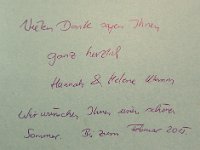 Vielen Dank sagen Ihnen
ganz herzlich
Hannah & Helene
Wir wünschen Ihnen einen schönen
Sommer. Bis zum Februar 2015